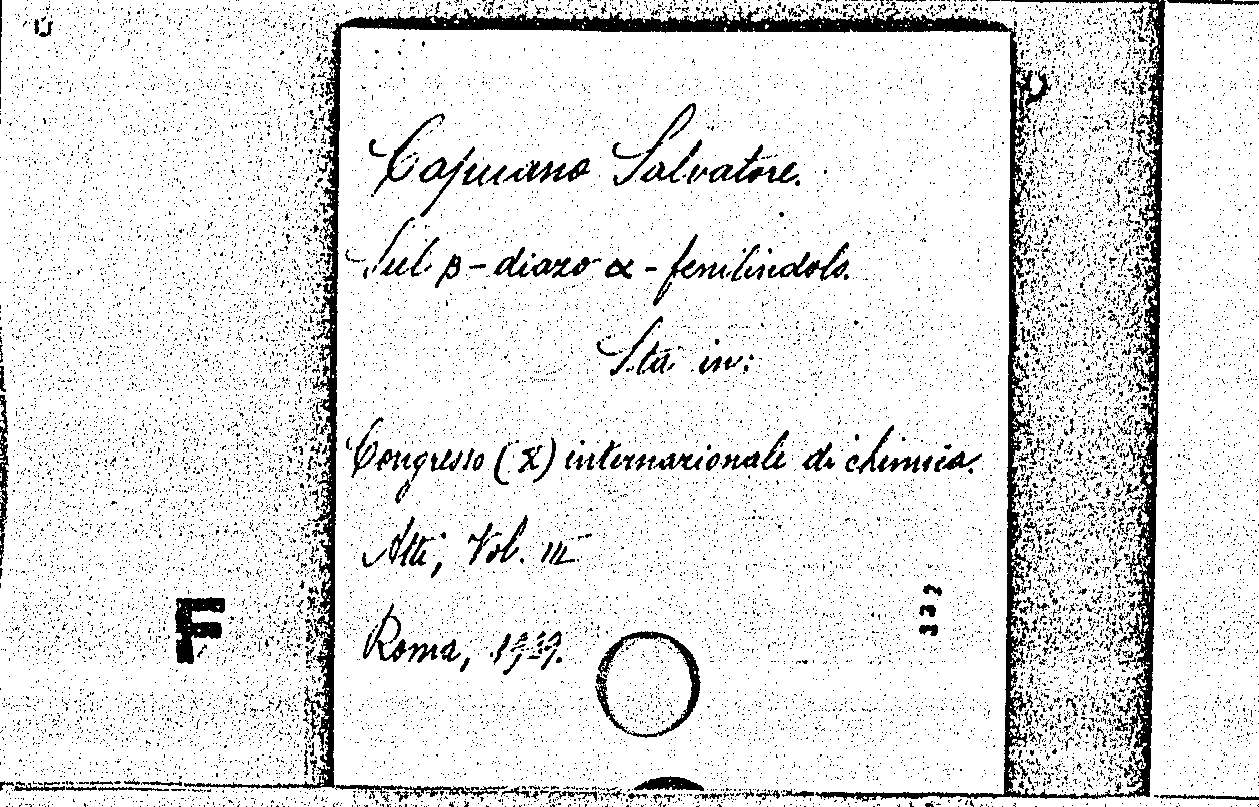 Capuano Salvatore.
Sul β-diazo α-fenilindolo.
Sta in:
Congresso (X) internazionale di chimica.
Atti, Vol. III
Roma, 1939.
332
F